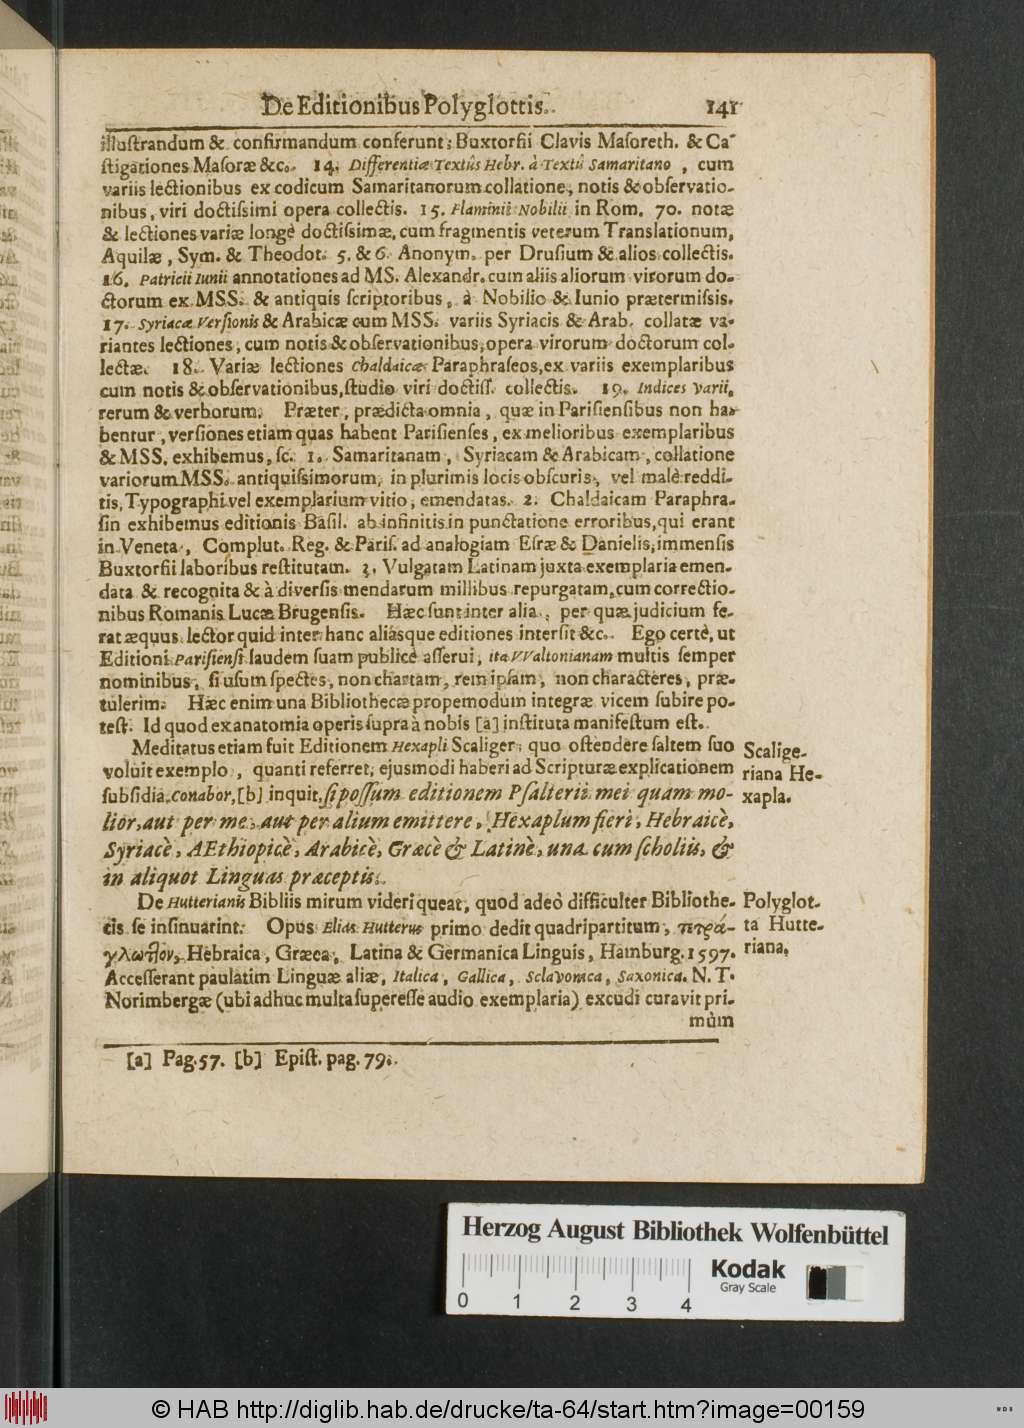 De Editionibus Polyglottis. 141
illustrandum & confirmandum conferunt; Buxtorfii Clavis Masoreth. & Ca-
stigationes Masoræ &c. 14. Differentiæ Textûs Hebr. à Textu Samaritano, cum
variis lectionibus ex codicum Samaritanorum collatione, notis & observatio-
nibus, viri doctissimi opera collectis. 15. Flaminii Nobilii in Rom. 70. notæ
& lectiones variæ longè doctissimæ, cum fragmentis veterum Translationum,
Aquilæ, Sym. & Theodot. 5. & 6. Anonym. per Drusium & alios collectis.
16. Patricii Iunii annotationes ad MS. Alexandr. cum aliis aliorum virorum do-
ctorum ex MSS. & antiquis scriptoribus, à Nobilio & Iunio prætermissis.
17. Syriacæ Versionis & Arabicæ cum MSS. variis Syriacis & Arab. collatæ va-
riantes lectiones, cum notis & observationibus, opera virorum doctorum col-
lectæ. 18. Variæ lectiones Chaldaicæ Paraphraseos, ex variis exemplaribus
cum notis & observationibus, studio viri doctiss. collectis. 19. Indices varii,
rerum & verborum. Præter, prædicta omnia, quæ in Parisiensibus non ha-
bentur, versiones etiam quas habent Parisienses, ex melioribus exemplaribus
& MSS. exhibemus, sc. 1. Samaritanam, Syriacam & Arabicam, collatione
variorum MSS. antiquissimorum, in plurimis locis obscuris, vel malè reddi-
tis, Typographi vel exemplarium vitio, emendatas. 2. Chaldaicam Paraphra-
sin exhibemus editionis Basil. ab infinitis in punctatione erroribus, qui erant
in Veneta, Complut. Reg. & Paris. ad analogiam Esræ & Danielis, immensis
Buxtorfii laboribus restitutam. 3. Vulgatam Latinam juxta exemplaria emen-
data & recognita & à diversis mendarum millibus repurgatam, cum correctio-
nibus Romanis Lucæ Brugensis. Hæc sunt inter alia, per quæ judicium fe-
rat æquus lector quid inter hanc aliasque editiones intersit &c. Ego certè, ut
Editioni Parisiensi laudem suam publicè asserui, ita VValtonianam multis semper
nominibus, si usum spectes, non chartam, rem ipsam, non characteres, præ-
tulerim. Hæc enim una Bibliothecæ propemodum integræ vicem subire po-
test. Id quod ex anatomia operis supra à nobis [a] instituta manifestum est.
Meditatus etiam fuit Editionem Hexapli Scaliger, quo ostendere saltem suo
voluit exemplo, quanti referret, ejusmodi haberi ad Scripturæ explicationem
subsidia. Conabor, [b] inquit, si possum editionem Psalterii mei quam mo-
lior, aut per me, aut per alium emittere, Hexaplum fieri, Hebraicè,
Syriacè, AEthiopicè, Arabicè, Græcè & Latinè, una cum scholiis, &
in aliquot Linguas præceptis.
Scalige-
riana He-
xapla.
De Hutterianis Bibliis mirum videri queat, quod adeò difficulter Bibliothe-
cis se insinuarint. Opus Elias Hutterus primo dedit quadripartitum, τετρά-
γλωτ]ον, Hebraica, Græca, Latina & Germanica Linguis, Hamburg. 1597.
Accesserant paulatim Linguæ aliæ, Italica, Gallica, Sclavonica, Saxonica. N. T.
Norimbergæ (ubi adhuc multa superesse audio exemplaria) excudi curavit pri-
mùm
Polyglot-
ta Hutte-
riana.
[a] Pag. 57. [b] Epist. pag. 79.
Herzog August Bibliothek Wolfenbüttel
0 1 2 3 4
Kodak
Gray Scale
© HAB http://diglib.hab.de/drucke/ta-64/start.htm?image=00159